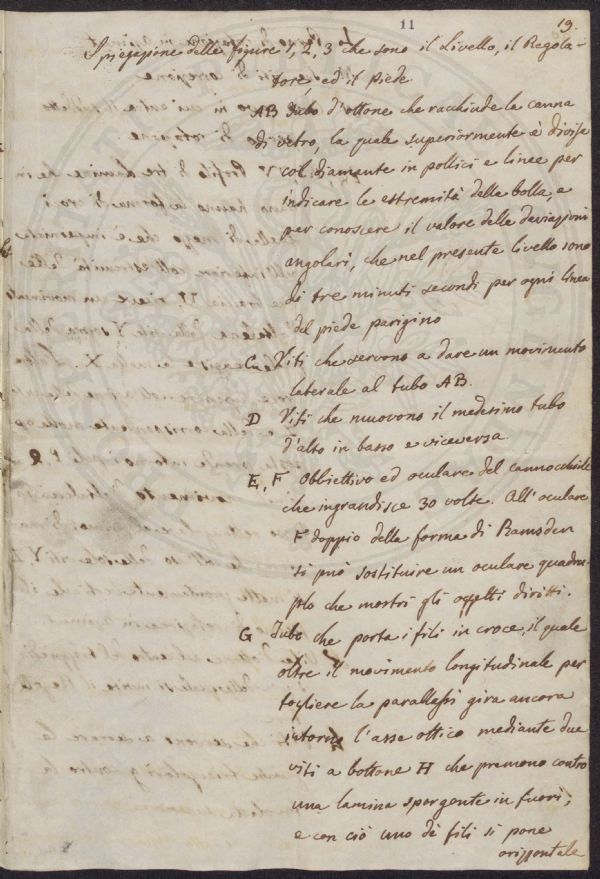 11
19.
Spiegazione delle figure 1, 2, 3 che sono il Livello, il Regola-
tore, ed il piede.
AB Tubo d'ottone che racchiude la canna
di vetro, la quale superiormente è divisa
col diamante in pollici e linee per
indicare le estremità della bolla, e
per conoscere il valore delle deviazioni
angolari, che nel presente livello sono
di tre minuti secondi per ogni linea
del piede parigino
C Viti che servono a dare un movimento
laterale al tubo AB.
D Viti che muovono il medesimo tubo
d'alto in basso e viceversa.
E, F Obbiettivo ed oculare del cannocchiale
che ingrandisce 30 volte. All'oculare
F doppio della forma di Ramsden
si può sostituire un oculare quadru-
plo che mostri gli oggetti diritti.
G Tubo che porta i fili in croce, il quale
oltre il movimento longitudinale per
togliere la parallassi gira ancora
intorno l'asse ottico mediante due
viti a bottone H che premono contro
una lamina sporgente in fuori;
e con ciò uno de' fili si pone
orizzontale